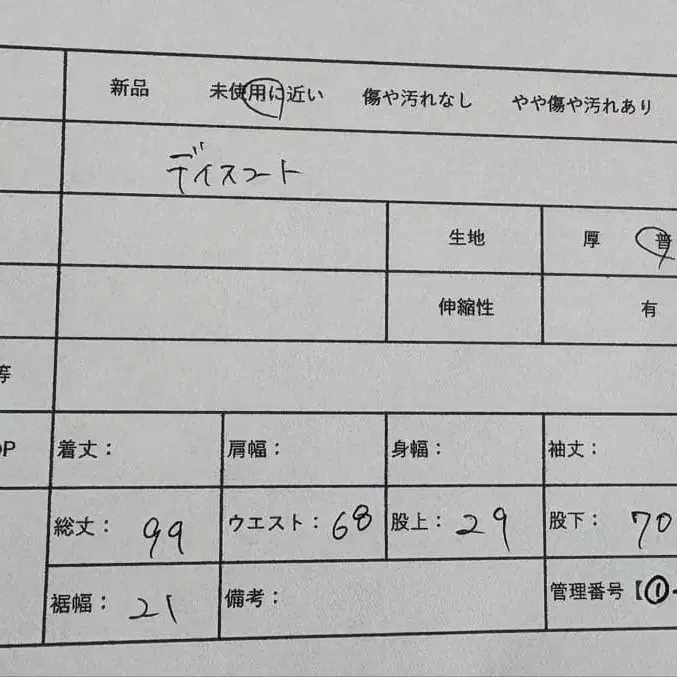 新品 未使用に近い 傷や汚れなし やや傷や汚れあり
ディスコート
生地 厚 普
伸縮性 有
等
OP 着丈： 肩幅： 身幅： 袖丈：
総丈： 99 ウエスト： 68 股上： 29 股下： 70
裾幅： 21 備考： 管理番号【①-